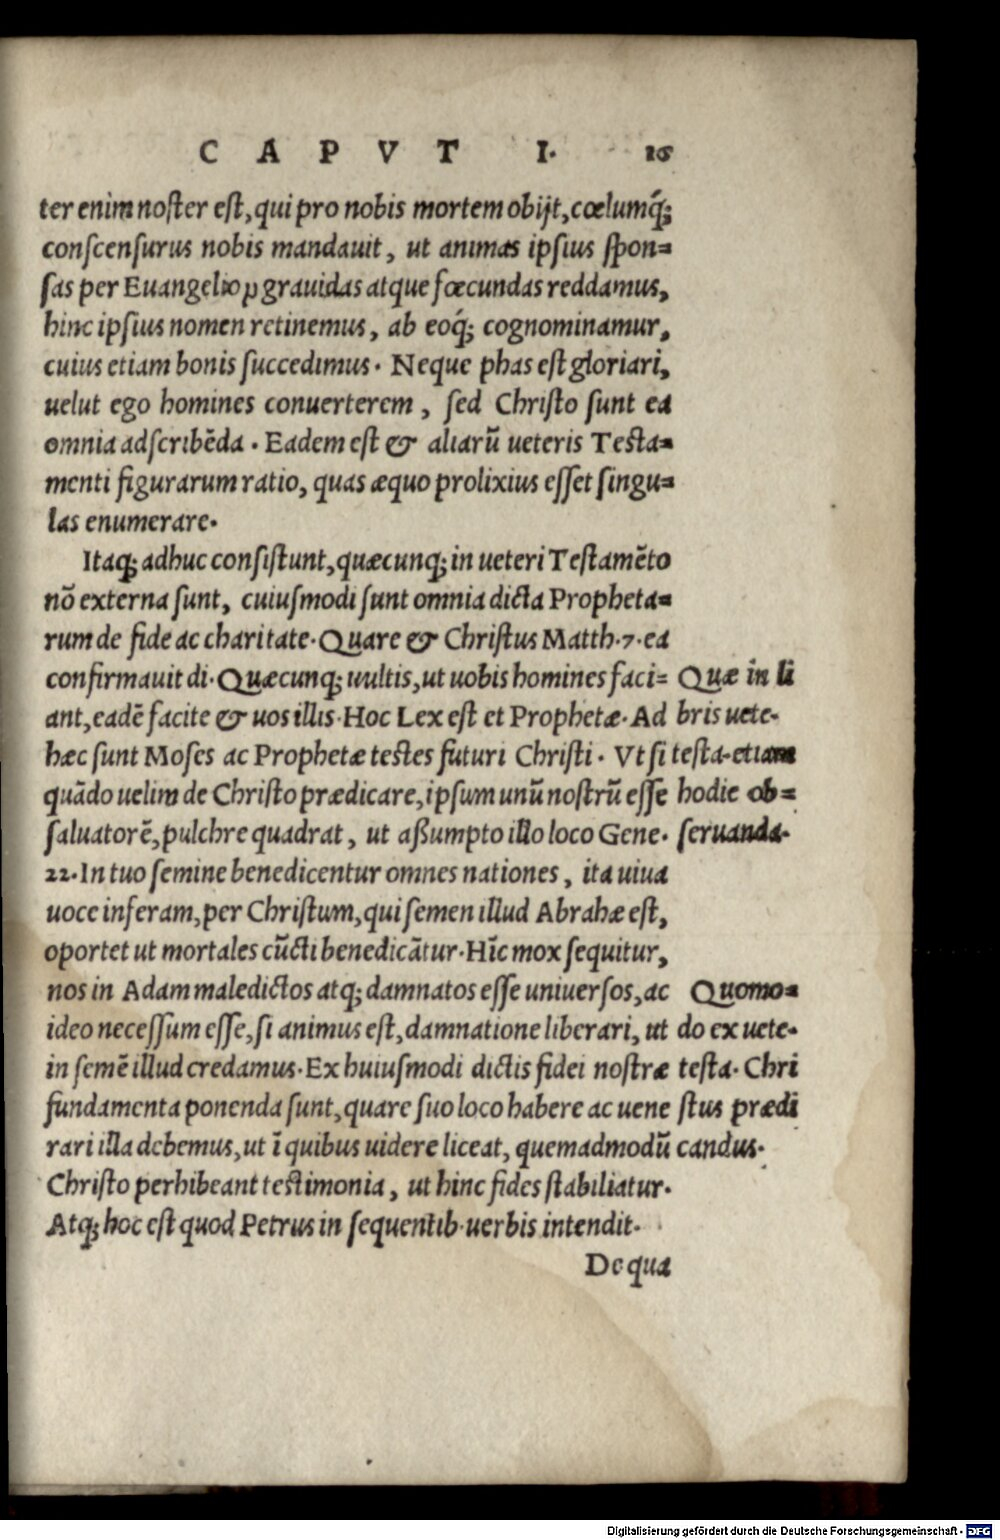 CAPVT I. 16
ter enim noster est, qui pro nobis mortem obijt, cœlumq́;
conscensurus nobis mandauit, ut animas ipsius spon=
sas per Euangelio grauidas atque fœcundas reddamus,
hinc ipsius nomen retinemus, ab eoq́; cognominamur,
cuius etiam bonis succedimus. Neque phas est gloriari,
uelut ego homines conuerterem, sed Christo sunt ea
omnia adscribẽda. Eadem est & aliarũ ueteris Testa=
menti figurarum ratio, quas æquo prolixius esset singu=
las enumerare.
Itaq; adhuc consistunt, quæcunq; in ueteri Testamẽto
nõ externa sunt, cuiusmodi sunt omnia dicta Propheta=
rum de fide ac charitate. Quare & Christus Matth. 7. ea
confirmauit di. Quæcunq; uultis, ut uobis homines faci=
ant, eadẽ facite & uos illis. Hoc Lex est et Prophetæ. Ad
hæc sunt Moses ac Prophetæ testes futuri Christi. Vt si
quãdo uelim de Christo prædicare, ipsum unũ nostrũ esse
saluatorẽ, pulchre quadrat, ut aßumpto illo loco Gene.
22. In tuo semine benedicentur omnes nationes, ita uiua
uoce inferam, per Christum, qui semen illud Abrahæ est,
oportet ut mortales cũcti benedicãtur. Hĩc mox sequitur,
nos in Adam maledictos atq; damnatos esse uniuersos, ac
ideo necessum esse, si animus est, damnatione liberari, ut
in semẽ illud credamus. Ex huiusmodi dictis fidei nostræ
fundamenta ponenda sunt, quare suo loco habere ac uene
rari illa debemus, ut ĩ quibus uidere liceat, quemadmodũ
Christo perhibeant testimonia, ut hinc fides stabiliatur.
Atq; hoc est quod Petrus in sequentib. uerbis intendit.
De qua
Quæ in li
bris uete-
testa-etiam
hodie ob=
seruanda.
Quomo=
do ex uete-
testa. Chri
stus prædi
candus.
Digitalisierung gefördert durch die Deutsche Forschungsgemeinschaft - DFG